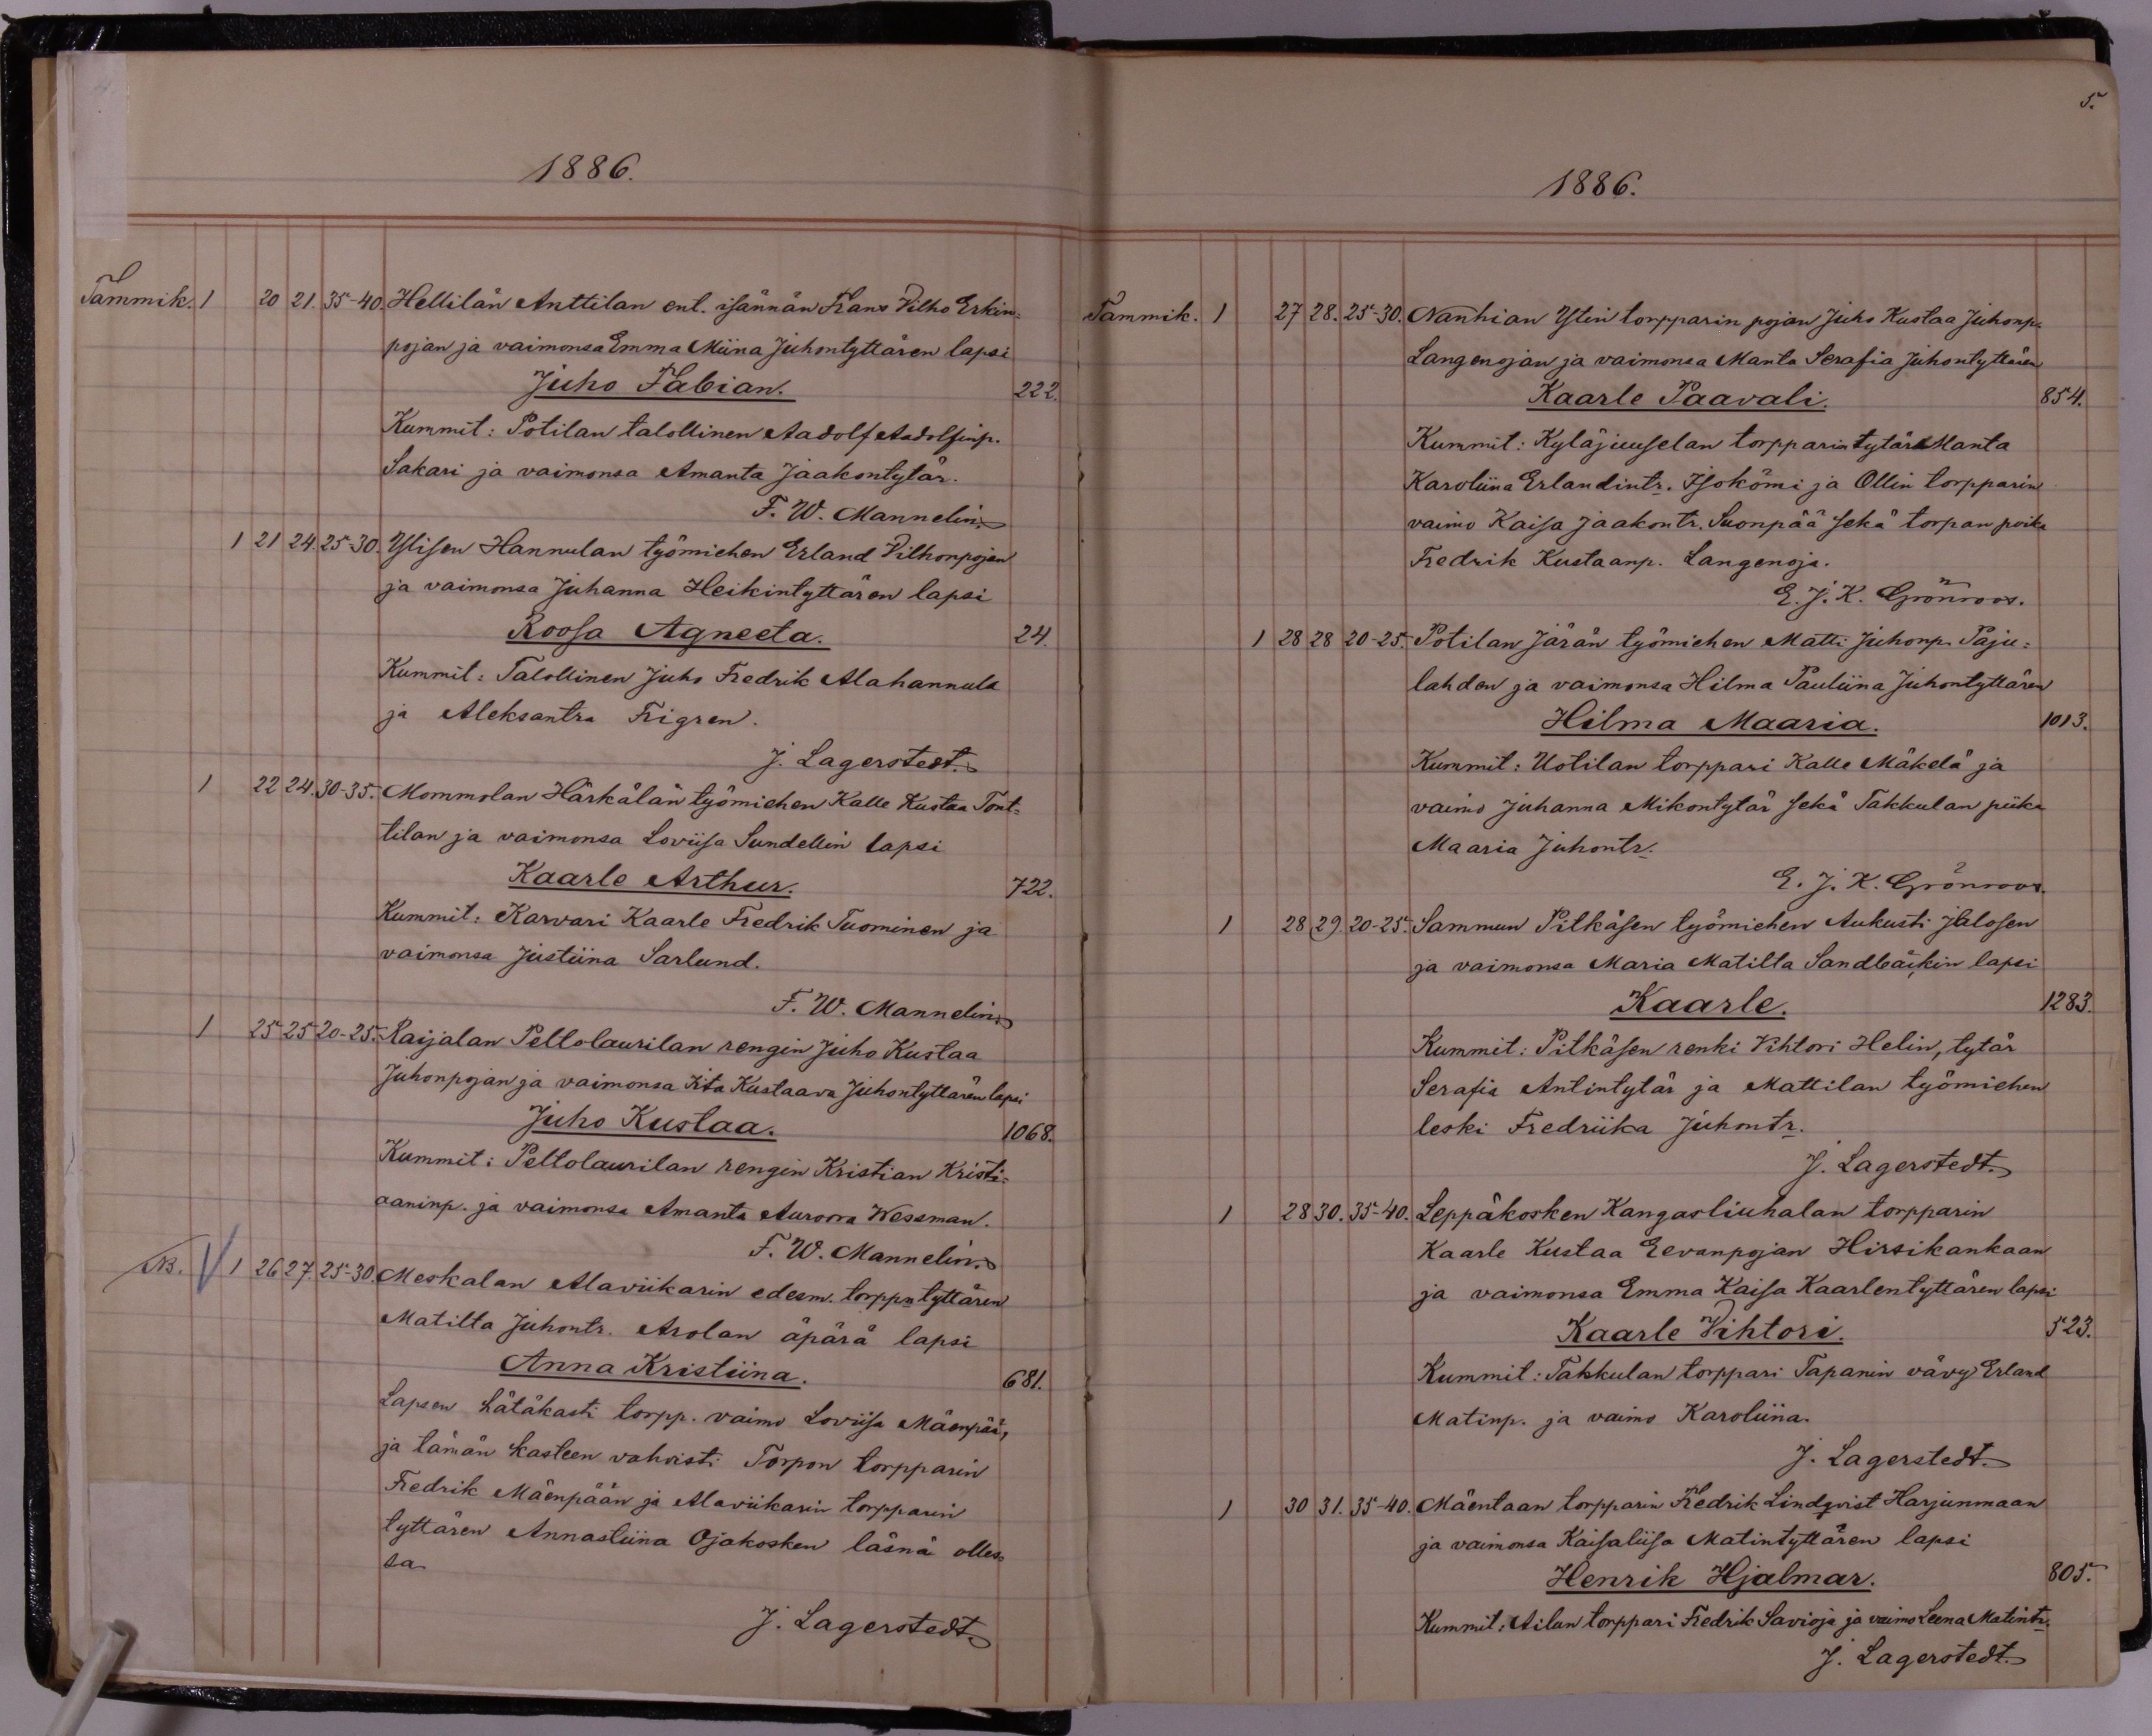 1886.
Tammik. 1 20 21. 35-40. Hellilän Anttilan ent. isännän Frans Vilho Erkin-
pojan ja vaimonsa Emma Miina Juhontyttären lapsi
Juho Fabian. 222.
Kummit: Potilan talollinen Aadolf Aadolfinp.
Sakari ja vaimonsa Amanta Jaakontytär.
F. W. Mannelin.
1 21 24. 25-30. Ylisen Hannulan työmiehen Erland Vilhonpojan
ja vaimonsa Juhanna Heikintyttären lapsi
Roosa Agneeta. 24.
Kummit: Talollinen Juho Fredrik Alahannula
ja Aleksantra Frigren.
J. Lagerstedt.
1 22 24. 30-35. Mommolan Härkälän työmiehen Kalle Kustaa Tont-
tilan ja vaimonsa Loviisa Sundellin lapsi
Kaarle Arthur. 722.
Kummit: Karvari Kaarle Fredrik Tuominen ja
vaimonsa Justiina Sarlund.
F. W. Mannelin.
1 25 25 20-25. Raijalan Peltolaurilan rengin Juho Kustaa
Juhonpojan ja vaimonsa Iita Kustaava Juhontyttären lapsi
Juho Kustaa. 1068.
Kummit: Peltolaurilan rengin Kristian Kristi-
aaninp. ja vaimonsa Amanta Auroora Wessman.
F. W. Mannelin.
NB. V 1 26 27. 25-30. Meskalan Alaviikarin edesm. torpp:n tyttären
Matilta Juhontr. Arolan äpärä lapsi
Anna Kristiina. 681.
Lapsen hätäkasti torpp. vaimo Loviisa Mäenpää,
ja tämän kasteen vahvisti Torpon torpparin
Fredrik Mäenpään ja Alaviikarin torpparin
tyttären Annastiina Ojakosken läsnä olles-
sa
J. Lagerstedt.
5.
1886.
Tammik. 1 27 28. 25-30. Nanhian Ylin torpparin pojan Juho Kustaa Juhonp.
Langenojan ja vaimonsa Manta Serafia Juhontyttären
Kaarle Paavali. 854.
Kummit: Kyläjuuselan torpparin tytär Manta
Karoliina Erlandintr. Isokömi ja Ollin torpparin
vaimo Kaisa Jaakontr. Suonpää sekä torpan poika
Fredrik Kustaanp. Langenoja.
E. J. K. Grönroos.
1 28 28 20-25. Potilan Järän työmiehen Matti Juhonp. Paju-
lahden ja vaimonsa Hilma Pauliina Juhontyttären
Hilma Maaria. 1013.
Kummit: Uotilan torppari Kalle Mäkelä ja
vaimo Juhanna Mikontytär sekä Takkulan piika
Maaria Juhontr.
E. J. K. Grönroos.
1 28 29. 20-25. Sammun Pitkäsen työmiehen Aukusti Jalosen
ja vaimonsa Maria Matilta Sandbäckin lapsi
Kaarle. 1283.
Kummit: Pitkäsen renki Vihtori Helin, tytär
Serafia Antintytär ja Mattilan työmiehen
leski Fredriika Juhontr.
J. Lagerstedt.
1 28 30. 35-40. Leppäkosken Kangasliuhalan torpparin
Kaarle Kustaa Eevanpojan Hirsikankaan
ja vaimonsa Emma Kaisa Kaarlentyttären lapsi
Kaarle Vihtori. 523.
Kummit: Takkulan torppari Tapanin vävy Erland
Matinp. ja vaimo Karoliina.
J. Lagerstedt.
1 30 31. 35-40. Mäentaan torpparin Fredrik Lindqvist Harjunmaan
ja vaimonsa Kaisaliisa Matintyttären lapsi
Henrik Hjalmar. 805.
Kummit: Ailan torppari Fredrik Savioja ja vaimo Leena Matintr.
J. Lagerstedt.